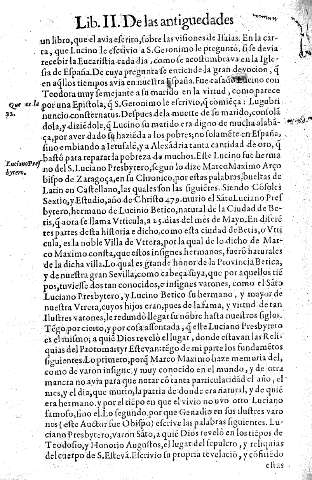 Lib. II. De las antiguedades
un libro, que el avia escrito, sobre las visiones de Isaias. En la car-
ta, que Lucino le escrivio a S. Geronimo le preguntó, si se devia
recebir la Eucaristia cada dia, como se acostumbrava en la Igle-
sia de España. De cuya pregunta se entiende la gran devocion, q̃
en aq̃llos tiempos avia en nuestra España. Fue casado Lucino con
Teodora muy semejante a su marido en la virtud, como parece
por una Epistola, q̃ S. Geronimo le escrivio, q̃ comiẽça: Lugubri
nuncio consternatus. Despues de la muerte de su marido, consolã
dola, y diziẽdole, q̃ Lucino su marido era digno de mucha alabã-
ça, por aver dado su haziẽda a los pobres; no solamẽte en España,
sino embiando a Ierusalẽ, y a Alexãdria tanta cantidad de oro, q̃
bastó para reparar la pobreza de muchos. Este Lucino fue herma-
no del S. Luciano Presbytero, segun lo dize Marco Maximo Arço
bispo de Zaragoça, en su Chronico, por estas palabras, bueltas de
Latin en Castellano, las quales son las siguiẽtes. Siendo Cõsoles
Sexto, y Estudio, año de Christo 479. murio el Sãto Luciano Pres
bytero, hermano de Lucinio Betico, natural de la Ciudad de Be-
tis, q̃ aora se llama Vtricula, a 25. dias del mes de Mayo. En diferẽ
tes partes desta historia e dicho, como esta ciudad de Betis, o Vtri
cula, es la noble Villa de Vtrera, por la qual de lo dicho de Mar-
co Maximo consta, que estos insignes hermanos, fuerõ naturales
de la dicha villa. Lo qual es grande honor de la Provincia Betica,
y de nuestra gran Sevilla, como cabeça suya, que por aquellos tiẽ
pos, tuviesse dos tan conocidos, e insignes varones, como el Sãto
Luciano Presbytero, y Lucino Betico su hermano, y mayor de
nuestra Vtrera, cuyos hijos eran, pues de la fama, y virtud de tan
Ilustres varones, le redundó llegar su nõbre hasta nuestros siglos.
Tẽgo por cierto, y por cosa assentada, q̃ este Luciano Presbytero
es el mismo, a quiẽ Dios reveló el lugar, donde estavan las Reli-
quias del Protomartyr Estevan: tẽgo de mi parte los fundamẽtos
siguientes. Lo primero, porq̃ Marco Maximo haze memoria del,
como de varon insigne, y muy conocido en el mundo, y de otra
manera no avia para que notar cõ tanta particularidad el año, el
mes, y el dia, que murio, la patria de donde era natural, y de quiẽ
era hermano, y por el tiẽpo en que el vivio no uvo otro Luciano
famoso, sino el. Lo segundo, por que Genadio en sus ilustres varo
nes (este Auctor fue Obispo) escrive las palabras siguientes. Lu-
ciano Presbytero, varon Sãto, a quiẽ Dios reveló en los tiẽpos de
Teodosio, y Honorio Augustos, el lugar del sepulcro, y reliquias
del cuerpo de S. Estevã. Escrivio su propria revelació, y cõfiriẽdo
estas
Lucino Pres
bytero.